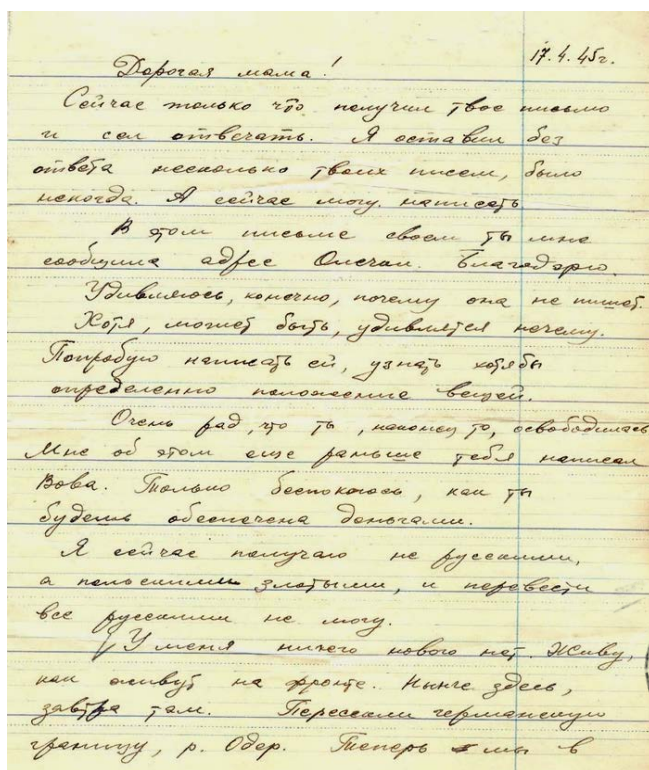 17.4.45г.
Дорогая мама!
Сейчас только что получил твое письмо
и сел отвечать. Я оставил без
ответа несколько твоих писем, было
некогда. А сейчас могу написать.
В этом письме своем ты мне
сообщила адрес Олечки. Благодарю.
Удивляюсь, конечно, почему она не пишет.
Хотя, может быть, удивляться нечему.
Попробую написать ей, узнать хотя бы
определенно положение вещей.
Очень рад, что ты, наконец то, освободилась
Мне об этом еще раньше тебя написал
Вова. Только беспокоюсь, как ты
будешь обеспечена деньгами.
Я сейчас получаю не русскими,
а польскими злотыми, и перевести
все русскими не могу.
У меня ничего нового нет. Живу,
как живут на фронте. Нынче здесь,
завтра там. Пересекли германскую
границу, р. Одер. Теперь мы в